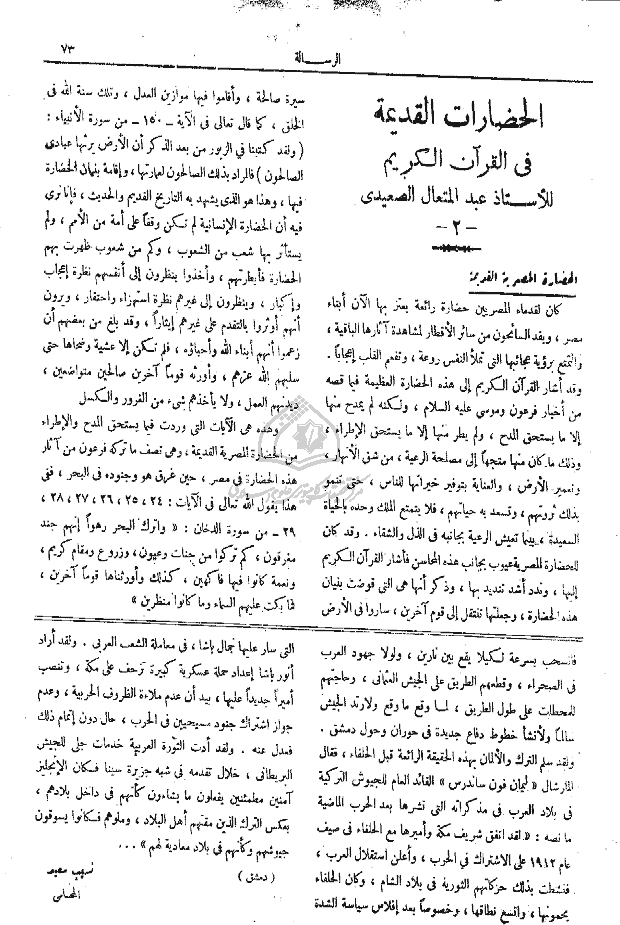 الرسالة
٧٣
الحضارات القديمة
فى القرآن الكريم
للأستاذ عبد المتعال الصعيدى
- ٢ -
الحضارة المصرية القديمة
كان لقدماء المصريين حضارة رائعة يعتز بها الآن أبناء
مصر ، ويفد السائحون من سائر الأقطار لمشاهدة آثارها الباقية ،
والتمتع برؤية عجائبها التى تملأ النفس روعة ، وتفعم القلب إعجاباً .
وقد أشار القرآن الكريم إلى هذه الحضارة العظيمة فيما قصه
من أخبار فرعون وموسى عليه السلام ، ولكنه لم يمدح منها
إلا ما يستحق المدح ، ولم يطر منها إلا ما يستحق الإطراء ،
وذلك ما كان منها متجهاً إلى مصلحة الرعية ، من شق الأنهار ،
وتعمير الأرض ، والعناية بتوفير خيراتها للناس ، حتى تنمو
بذلك ثروتهم ، وتسعد به حياتهم ، فلا يتمتع الملك وحده بالحياة
السعيدة ، بينما تعيش الرعية بجانبه فى الذل والشقاء . وقد كان
للحضارة المصرية عيوب بجانب هذه المحاسن فأشار القرآن الكريم
إليها ، وندد أشد تنديد بها ، وذكر أنها هى التى قوضت بنيان
هذه الحضارة ، وجعلتها تنتقل إلى قوم آخرين ، ساروا فى الأرض
سيرة صالحة ، وأقاموا فيها موازين العدل ، وتلك سنة الله فى
الخلق ، كما قال تعالى فى الآية - ١٥٠ - من سورة الأنبياء :
( ولقد كتبنا فى الزبور من بعد الذكر أن الأرض يرثها عبادى
الصالحون ) فالمراد بذلك الصالحون لعمارتها ، وإقامة بنيان الحضارة
فيها ، وهذا هو الذى يشهد به التاريخ القديم والحديث ، فإنا نرى
فيه أن الحضارة الإنسانية لم تكن وقفاً على أمة من الأمم ، ولم
يستأثر بها شعب من الشعوب ، وكم من شعوب ظهرت بهم
الحضارة فأبطرتهم ، وأخذوا ينظرون إلى أنفسهم نظرة إعجاب
وإكبار ، وينظرون إلى غيرهم نظرة استهزاء واحتقار ، ويرون
أنهم أوثروا بالتقدم على غيرهم إيثاراً ، وقد بلغ من بعضهم أن
زعموا أنهم أبناء الله وأحباؤه ، فلم تكن إلا عشية وضحاها حتى
سلبهم الله عزهم ، وأورثه قوماً آخرين صالحين متواضعين ،
ديدنهم العمل ، ولا يأخذهم شىء من الغرور والكسل
وهذه هى الآيات التى وردت فيما يستحق المدح والإطراء
من الحضارة المصرية القديمة ، وهى تصف ما تركه فرعون من آثار
هذه الحضارة فى مصر ، حين غرق هو وجنوده فى البحر ، ففى
هذا يقول الله تعالى فى الآيات : ٢٤ ، ٢٥ ، ٢٦ ، ٢٧ ، ٢٨ ،
٢٩ - من سورة الدخان : « واترك البحر رهواً إنهم جند
مغرقون ، كم تركوا من جنات وعيون ، وزروع ومقام كريم ،
ونعمة كانوا فيها فاكهين ، كذلك وأورثناها قوماً آخرين ،
فما بكت عليهم السماء وما كانوا منظرين »
فانسحب بسرعة لكيلا يقع بين نارين ، ولولا جهود العرب
فى الصحراء ، وقطعهم الطريق على الجيش العثمانى ، وحاجتهم
للمحطات على طول الطريق ، لما وقع ما وقع ولارتد الجيش
سالماً ولأنشأ خطوط دفاع جديدة فى حوران وحول دمشق .
ولقد سلم الترك والألمان بهذه الحقيقة الرائعة قبل الحلفاء ، فقال
المارشال « ليمان فون ساندرس » القائد العام للجيوش التركية
فى بلاد العرب فى مذكراته التى نشرها بعد الحرب الماضية
ما نصه : « لقد اتفق شريف مكة وأميرها مع الحلفاء فى صيف
عام ١٩١٢ على الاشتراك فى الحرب ، وأعلن استقلال العرب ،
فنشطت بذلك حركاتهم الثورية فى بلاد الشام ، وكان الحلفاء
يحمونها ، واتسع نطاقها ، وخصوصاً بعد إفلاس سياسة الشدة
التى سار عليها جمال باشا ، فى معاملة الشعب العربى . ولقد أراد
أنور باشا إعداد حملة عسكرية كبيرة تزحف على مكة ، وتنصب
أميراً جديداً عليها ، بيد أن عدم ملاءة الظروف الحربية ، وعدم
جواز اشتراك جنود مسيحيين فى الحرب ، حال دون إتمام ذلك
فعدل عنه . ولقد أدت الثورة العربية خدمات جلى للجيش
البريطانى ، خلال تقدمه فى شبه جزيرة سينا فكان الإنجليز
آمنين مطمئنين يفعلون ما يشاءون كأنهم فى داخل بلادهم ،
بعكس الترك الذين مقتهم أهل البلاد ، وملوهم فكانوا يسوقون
جيوشهم وكأنهم فى بلاد معادية لهم » ...
( دمشق )
نسيب سعيد
المحامى